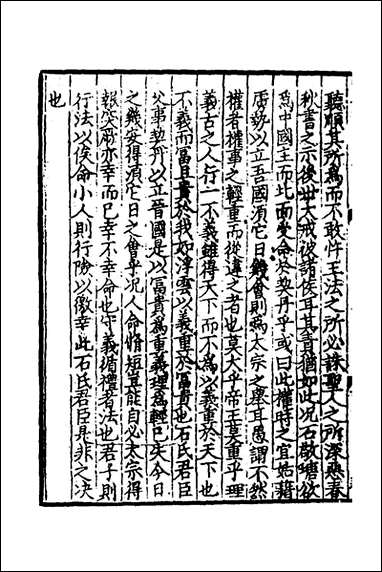 聽順其所為而不敢忤王法之所必誅聖人之所深惡春
秋書之示後世大戒彼諸侯耳其責猶如此况石敬塘欲
為中國王而北面受命於契丹乎或曰此權時之宜姑藉
虜勢以立吾國須它日幾會則為太宗之舉耳愚謂不然
權者權事之輕重而從違之者也莫大乎帝王莫重乎理
義古之人行一不義雖得天下而不為以義重於天下也
不義而富且貴於我如浮雲以義重於富貴也石氏君臣
父事契丹以立晉國是以富貴為重義理為輕已失今日
之幾安得須它日之會乎况人命脩短豈能自必太宗得
報突厥亦幸而已幸不幸命也守義循禮者法也君子則
行法以俟命小人則行險以徼幸此石氏君臣是非之决
也